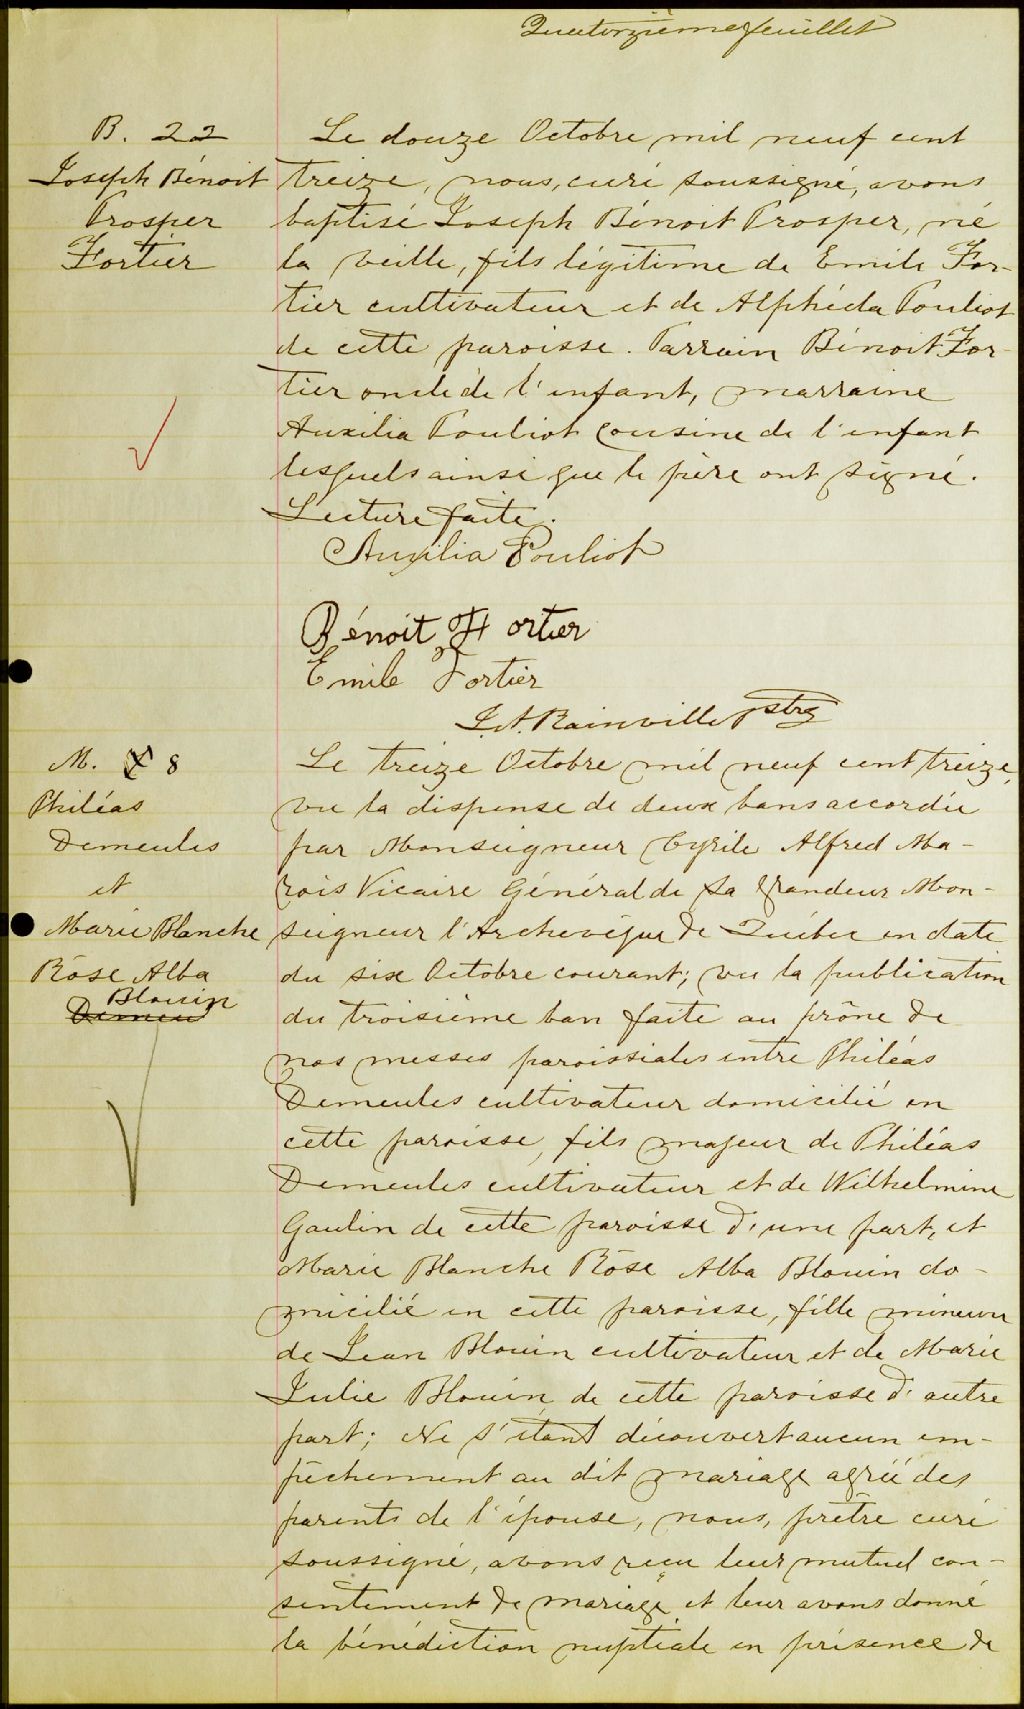 Quatorzième feuillet
B. 22
Joseph Bénoit
Prosper
Fortier
Le douze Octobre mil neuf cent
treize, nous, curé soussigné, avons
baptisé Joseph Bénoit Prosper, né
la veille, fils légitime de Emile For-
tier cultivateur et de Alphéda Pouliot
de cette paroisse. Parrain Bénoit For-
tier oncle de l'enfant, marraine
Auxilia Pouliot cousine de l'enfant
lesquels ainsi que le père ont signé.
Lecture faite.
Auxilia Pouliot
Bénoit Fortier
Emile Fortier
J. A. Rainville ptre
M. 8
Philéas
Demeules
et
Marie Blanche
Rose Alba
Blouin
Demeu
Le treize Octobre mil neuf cent treize,
vu la dispense de deux bans accordée
par Monseigneur Cyrile Alfred Ma-
rois Vicaire Général de Sa Grandeur Mon-
seigneur l'Archevêque de Québec en date
du six Octobre courant; vu la publication
du troisième ban faite au prône de
nos messes paroissiales entre Philéas
Demeules cultivateur domicilié en
cette paroisse, fils majeur de Philéas
Demeules cultivateur et de Wilhelmine
Gaulin de cette paroisse d'une part, et
Marie Blanche Rose Alba Blouin do-
micilié en cette paroisse, fille mineure
de Jean Blouin cultivateur et de Marie
Julie Blouin de cette paroisse d'autre
part; Ne s'étant découvert aucun em-
pêchement au dit mariage agréé des
parents de l'épouse, nous, prêtre curé
soussigné, avons reçu leur mutuel con-
sentement de mariage et leur avons donné
la bénédiction nuptiale en présence de